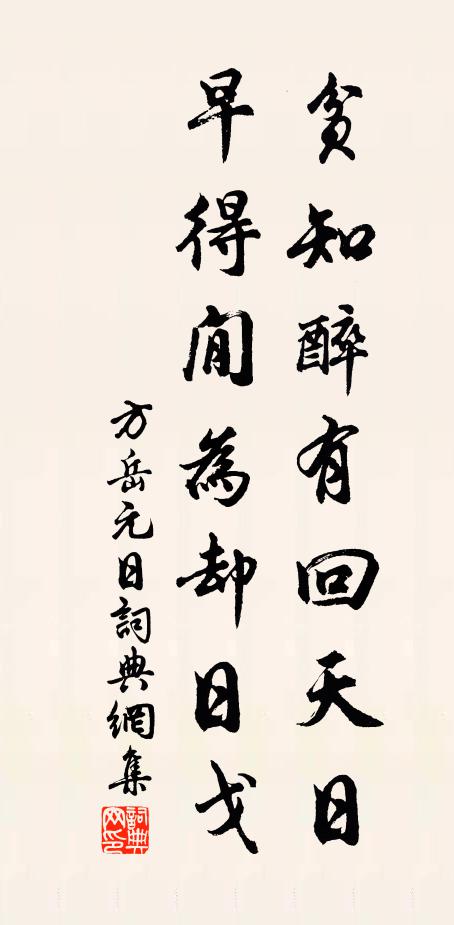 貧知醉有回天日
早得閒為却日戈
方岳元日詞典網集
詞典網印